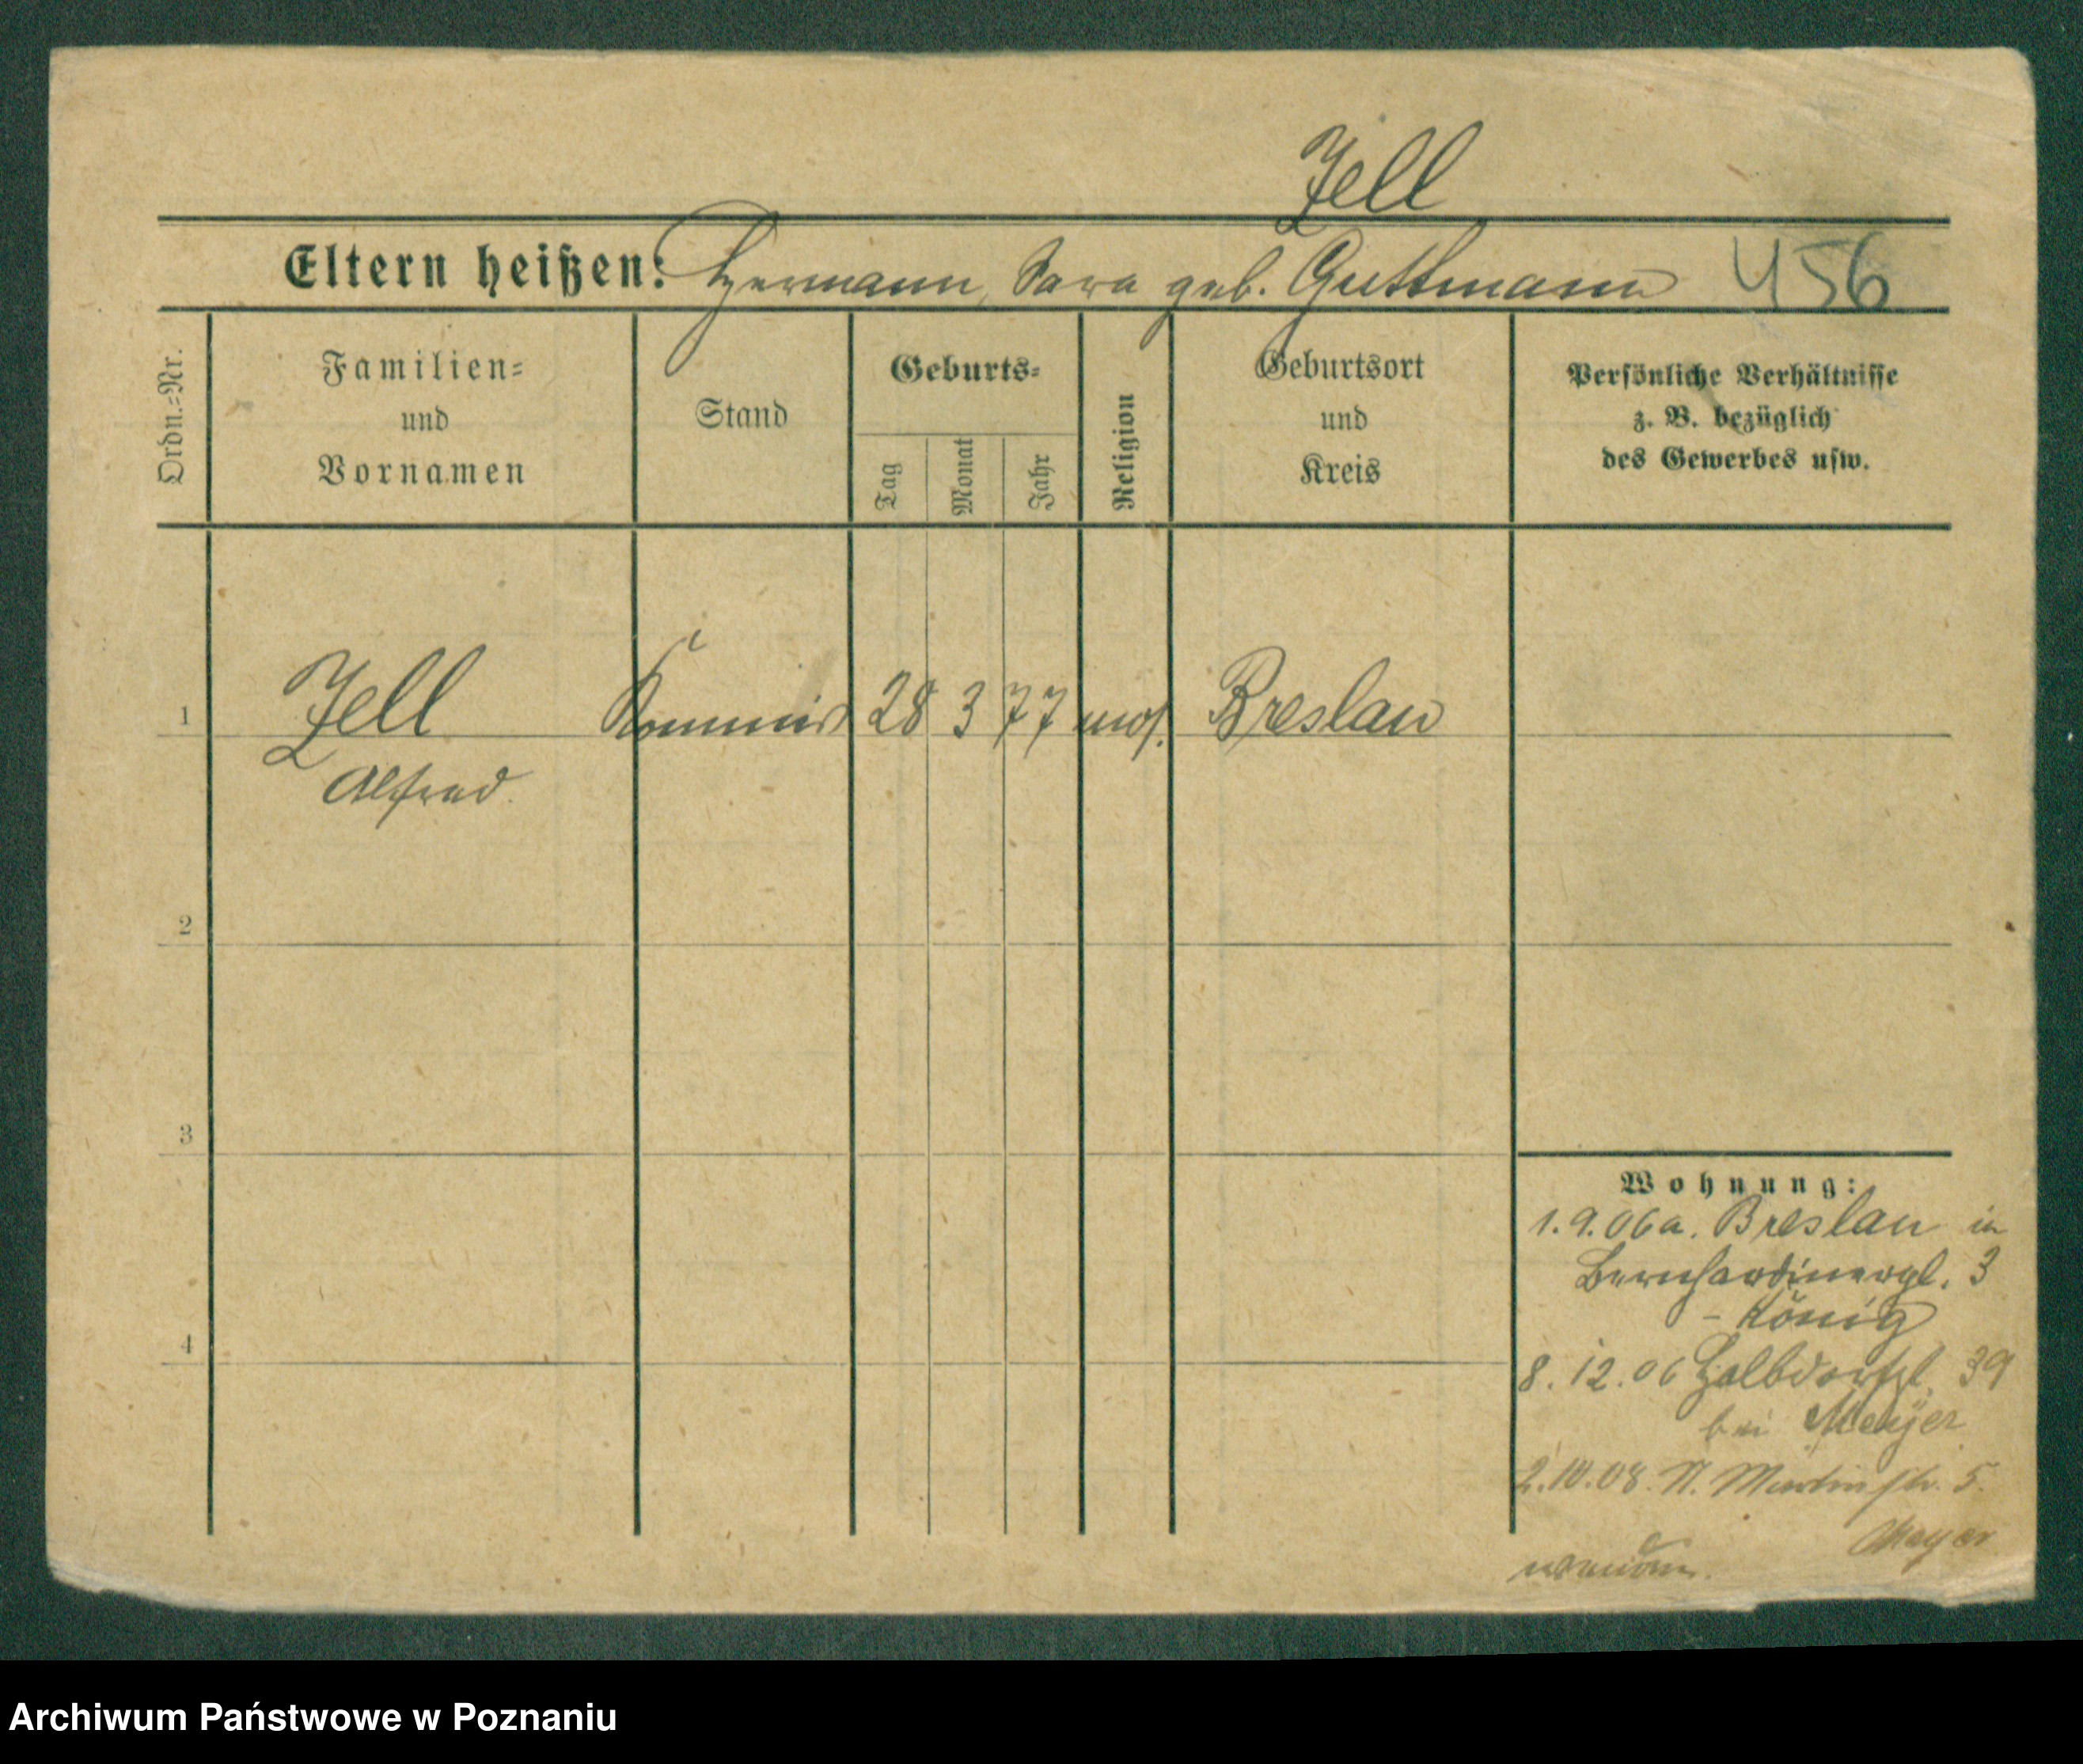 Zell
Eltern heißen: Hermann, Sara geb. Guttmann 456
Ordn.=Nr.
Familien=
und
Vornamen
Stand
Geburts=
Tag
Monat
Jahr
Religion
Geburtsort
und
Kreis
Persönliche Verhältnisse
z. B. bezüglich
des Gewerbes usw.
1 Zell Kommis 28 3 77 mos. Breslau
Alfred.
2
3
4
Wohnung:
1.9.06 a. Breslau in
Bernhardinerpl. 3
- König
8.12.06 Halbdorfpl. 39
bei Meyer
2.10.08. Martinstr. 5.
Meyer
wenden.
Archiwum Państwowe w Poznaniu